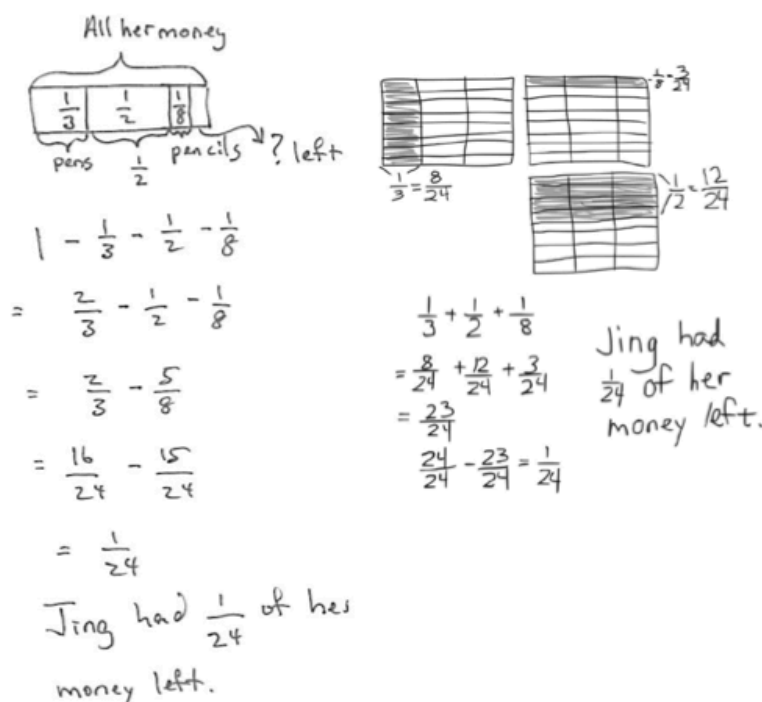 All her money
1/3 1/2 1/8
pens 1/2 pencils ? left
1 - 1/3 - 1/2 - 1/8
= 2/3 - 1/2 - 1/8
= 2/3 - 5/8
= 16/24 - 15/24
= 1/24
Jing had 1/24 of her
money left.
1/3 = 8/24
1/8 = 3/24
1/2 = 12/24
1/3 + 1/2 + 1/8
= 8/24 + 12/24 + 3/24
= 23/24
24/24 - 23/24 = 1/24
Jing had
1/24 of her
money left.